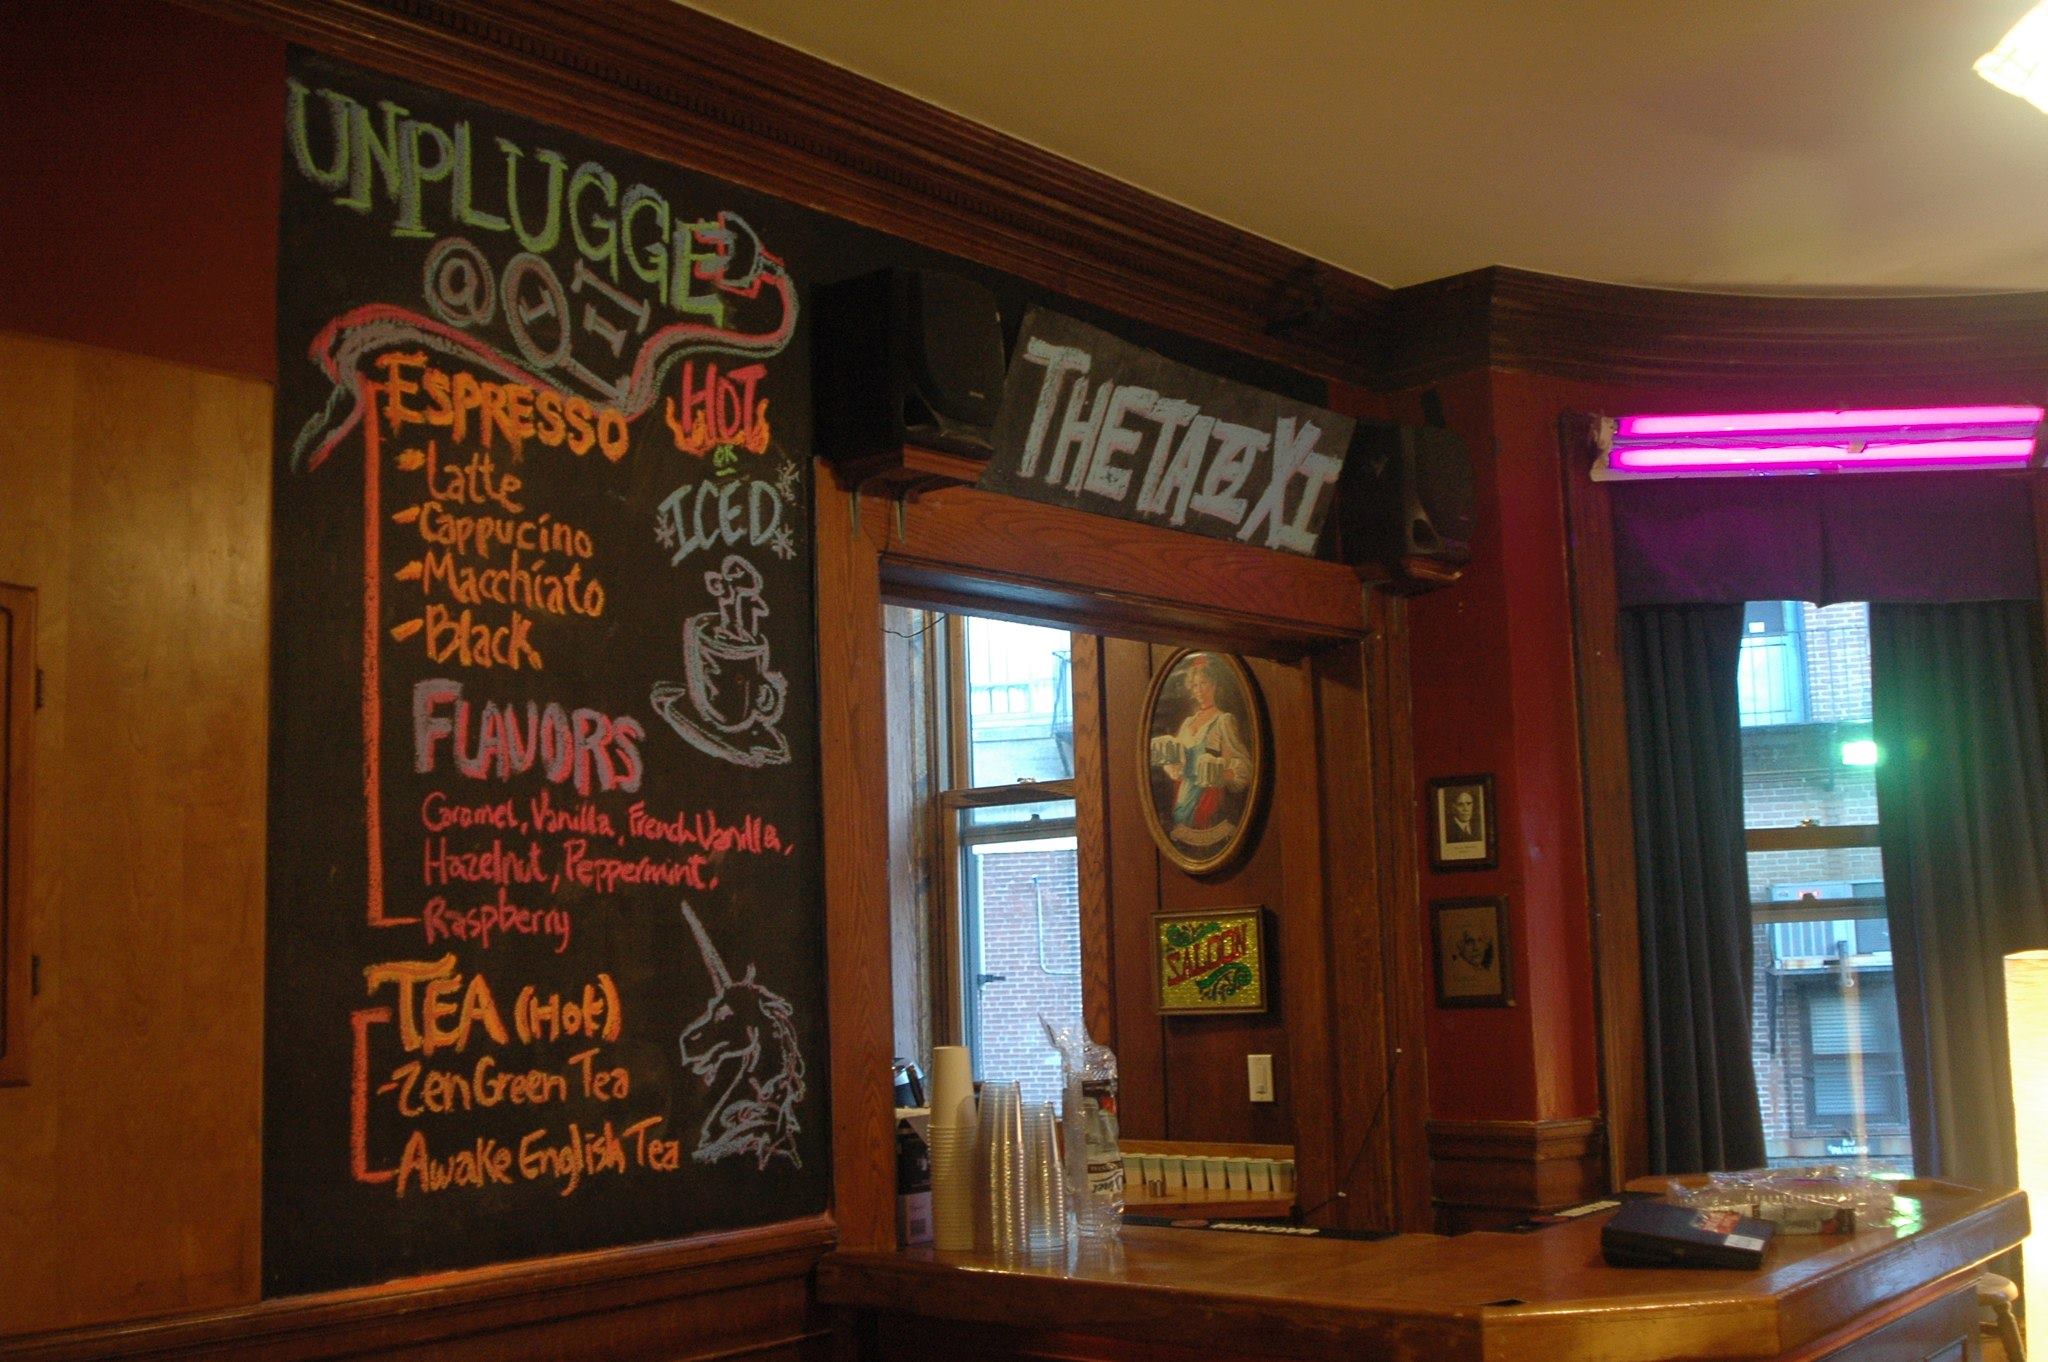 UNPLUGGE
@ ΘΞ
ESPRESSO
HOT
OR
ICED
*Latte
-Cappucino
-Macchiato
-Black
FLAVORS
Caramel, Vanilla, French Vanilla,
Hazelnut, Peppermint,
Raspberry
TEA (Hot)
-Zen Green Tea
Awake English Tea
THETA XI
SALOON